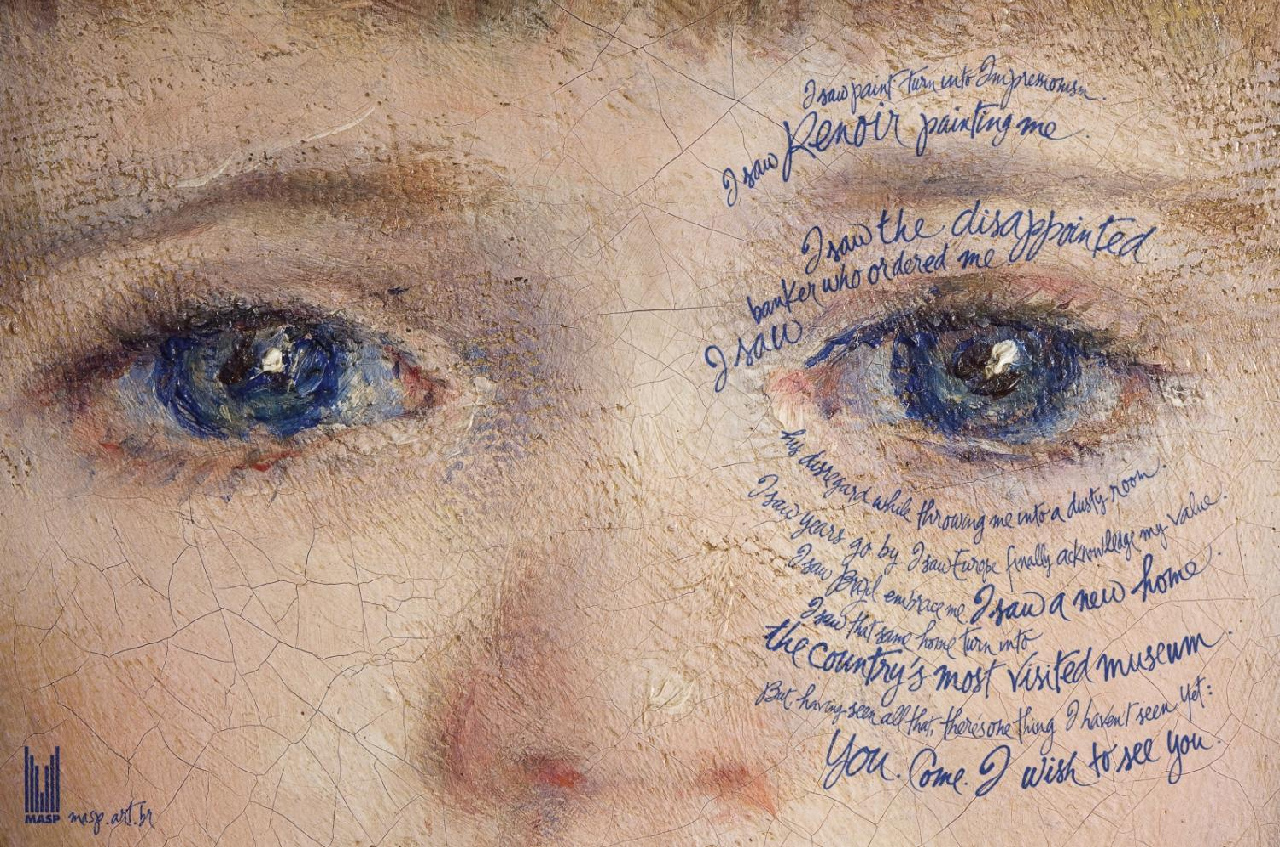 I saw paint turn into Impressionism.
I saw Renoir painting me.
I saw the disappointed
banker who ordered me
I saw
his disregard while throwing me into a dusty room.
I saw years go by. I saw Europe finally acknowledge my value.
I saw Brazil embrace me. I saw a new home.
I saw that same home turn into
the country's most visited museum.
But having seen all that, theres one thing I haven't seen yet:
You. Come. I wish to see you.
MASP masp.art.br